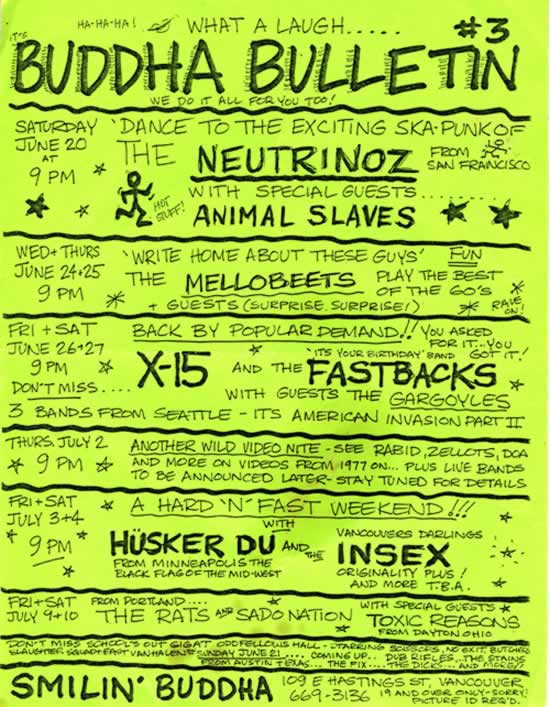 HA-HA-HA! WHAT A LAUGH..... #3
IT'S
BUDDHA BULLETIN
WE DO IT ALL FOR YOU TOO!
SATURDAY
JUNE 20
AT
9 PM
'DANCE TO THE EXCITING SKA-PUNK OF
THE NEUTRINOZ
FROM
SAN FRANCISCO
HOT STUFF!
WITH SPECIAL GUESTS........
ANIMAL SLAVES
WED + THURS
JUNE 24+25
9 PM
'WRITE HOME ABOUT THESE GUYS' FUN
THE MELLOBEETS PLAY THE BEST
OF THE 60'S
+ GUESTS (SURPRISE, SURPRISE!)
RAVE ON!
FRI + SAT
JUNE 26+27
9 PM
DON'T MISS....
BACK BY POPULAR DEMAND!! YOU ASKED
FOR IT...YOU
GOT IT!
'IT'S YOUR BIRTHDAY' BAND
X-15 AND THE FASTBACKS
WITH GUESTS THE GARGOYLES
3 BANDS FROM SEATTLE - IT'S AMERICAN INVASION PART II
THURS. JULY 2
9 PM
ANOTHER WILD VIDEO NITE - SEE RABID, ZELLOTS, DOA
AND MORE ON VIDEOS FROM 1977 ON... PLUS LIVE BANDS
TO BE ANNOUNCED LATER - STAY TUNED FOR DETAILS
FRI + SAT
JULY 3+4
9 PM
A HARD 'N' FAST WEEKEND!!!
WITH
HÜSKER DU AND THE INSEX
FROM MINNEAPOLIS THE
BLACK FLAG OF THE MID-WEST
VANCOUVERS DARLINGS
ORIGINALITY PLUS!
AND MORE T.B.A.
FRI + SAT
JULY 9+10
FROM PORTLAND....
THE RATS AND SADO NATION
WITH SPECIAL GUESTS
TOXIC REASONS
FROM DAYTON OHIO
DON'T MISS SCHOOL'S OUT GIG AT ODDFELLOWS HALL - STARRING SCISSORS, NO EXIT, BUTCHERS
SLAUGHER SQUAD + EAST VAN HALEN SUNDAY JUNE 21.... COMING UP.. DUB RIFLES... THE STAINS
FROM AUSTIN TEXAS... THE FIX.... THE DICKS... AND MORE??
SMILIN' BUDDHA
109 E HASTINGS ST, VANCOUVER
669-3136 19 AND OVER ONLY - SORRY!
PICTURE ID REQ'D.